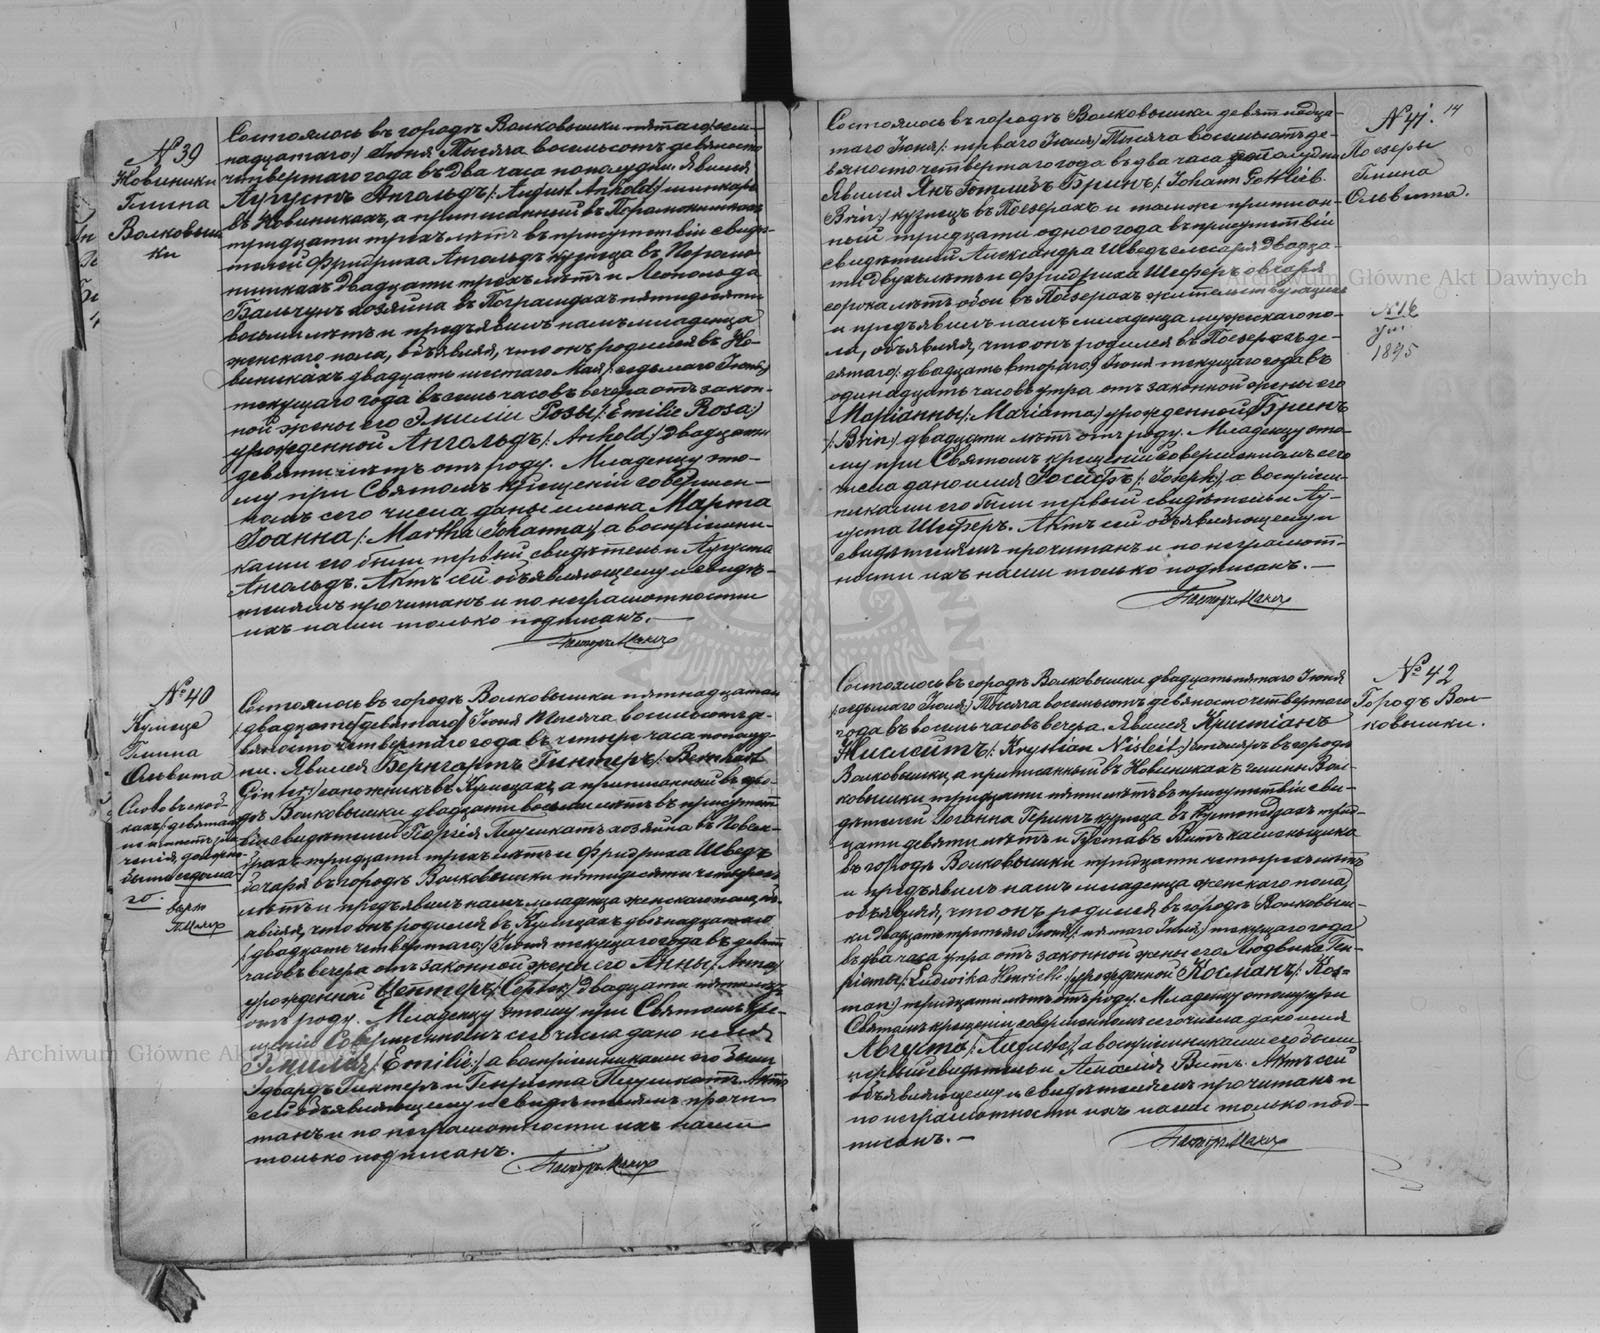 № 39
Новиники
Гмина
Волковыш
ки
Состоялось въ городѣ Волковышки пятаго /: сем-
надцатаго :/ Іюня Тысяча восемьсотъ девяносто
четвертаго года въ два часа пополудни. Явился
Августъ Ангольдъ /: August Anhold :/ шинкарь
въ Новиникахъ, а приписанный въ
тридцати трехъ лѣтъ въ присутствіи свидѣ-
телей Фридриха Ангольдъ кузнеца въ
двадцати трехъ лѣтъ и Леопольда
хозяина въ пятидесяти
восьми лѣтъ и предъявилъ намъ младенца
женскаго пола, объявляя, что онъ родился въ Но-
виникахъ двадцать шестаго Мая /: седьмаго Іюня :/
текущаго года въ семь часовъ вечера отъ закон-
ной жены его Эмиліи Розы /: Emilie Rosa :/
урожденной Ангольдъ /: Anhold :/ двадцати
девяти лѣтъ отъ роду. Младенцу это-
му при Святомъ крещеніи совершен-
номъ сего числа даны имена Марта
Іоанна /: Martha Johanna :/, а воспріемни-
ками его были первый свидѣтель и Августа
Ангольдъ. Актъ сей объявляющему и свидѣ-
телямъ прочитанъ и по неграмотности
ихъ нами только подписанъ. —
Пасторъ
№ 40
Гмина
Ольвита
Слово въ скоб-
кахъ /: девятаго
не имѣетъ зна
ченія, должно
быть седьма-
го.
Состоялось въ городѣ Волковышки пятнадцатаго
/: двадцать (девятаго) :/ Іюня Тысяча восемьсотъ де-
вяносто четвертаго года въ четыре часа пополуд-
ни. Явился Бернгартъ Гинтеръ /: Bernhard
Ginter :/ сапожникъ въ а приписанный въ горо-
дѣ Волковышки двадцати восьми лѣтъ въ присутст-
віи свидѣтелей хозяина въ
тридцати трехъ лѣтъ и Фридриха Шведъ
бочаря въ городѣ Волковышки пятидесяти четырехъ
лѣтъ и предъявилъ намъ младенца женскаго пола, объ-
являя, что онъ родился въ двѣнадцатаго
/: двадцать четвертаго :/ Іюня текущаго года въ девять
часовъ вечера отъ законной жены его Анны /: Anna :/
урожденной двадцати пяти лѣтъ
отъ роду. Младенцу этому при Святомъ кре-
щеніи совершенномъ сего числа дано имя
Эмилія /: Emilie :/, а воспріемниками его были
Эдвардъ Гинтеръ и Генріета Актъ
сей объявляющему и свидѣтелямъ прочи-
танъ и по неграмотности ихъ нами
только подписанъ.
Пасторъ
14
№ 41.
Поезеры
Гмина
Ольвита.
№ 16
ум.
1895
Состоялось въ городѣ Волковышки девятнадца-
таго Іюня /: перваго Іюля :/ Тысяча восемьсотъ де-
вяносто четвертаго года въ два часа пополудни
Явился Янъ Готлибъ Бринъ /: Johann Gottlieb
Brin :/ кузнецъ въ Поезерахъ и тамже приписан-
ный тридцати одного года въ присутствіи
свидѣтелей Александра Шведъ слесаря двадца-
ти двухъ лѣтъ и Фридриха Шеферъ овчаря
сорока лѣтъ обои въ Поезерахъ жительствующихъ
и предъявилъ намъ младенца мужескаго по-
ла, объявляя, что онъ родился въ Поезерахъ де-
сятаго /: двадцать втораго :/ Іюня текущаго года въ
одинадцать часовъ утра отъ законной жены его
Маріанны /: Marianna :/ урожденной Бринъ
/: Brin :/ двадцати лѣтъ отъ роду. Младенцу это-
му при Святомъ крещеніи совершенномъ сего
числа дано имя Іосифъ /: Joseph :/, а воспріем-
никами его были первый свидѣтель и Ав-
густа Шеферъ. Актъ сей объявляющему и
свидѣтелямъ прочитанъ и по неграмот-
ности ихъ нами только подписанъ. —
Пасторъ
№ 42
Городъ Вол-
ковышки.
Состоялось въ городѣ Волковышки двадцать пятаго Іюня
/: седьмаго Іюля :/ Тысяча восемьсотъ девяносто четвертаго
года въ восемь часовъ вечера. Явился Кристіанъ
Нислейтъ /: Krystian Nisleit :/ столяръ въ городѣ
Волковышки, а приписанный въ Новиникахъ гмины Вол-
ковышки тридцати пяти лѣтъ въ присутствіи сви-
дѣтелей Іоганна Герингъ кузнеца въ трид-
цати девяти лѣтъ и Густавъ Витъ каменьщика
въ городѣ Волковышки тридцати четырехъ лѣтъ
и предъявилъ намъ младенца женскаго пола,
объявляя, что онъ родился въ городѣ Волковыш-
ки двадцать третьяго Іюня /: пятаго Іюля :/ текущаго года
въ два часа утра отъ законной жены его Людвика Ген-
ріета /: Ludwika Henriette :/ урожденной Косманъ /: Kos-
man :/ тридцати лѣтъ отъ роду. Младенцу этому при
Святомъ крещеніи совершенномъ сего числа дано имя
Августа /: Auguste :/, а воспріемниками его были
первый свидѣтель и Амалія Витъ. Актъ сей
объявляющему и свидѣтелямъ прочитанъ и
по неграмотности ихъ нами только под-
писанъ. —
Пасторъ
Archiwum Główne Akt Dawnych
Archiwum Główne Akt Dawnych